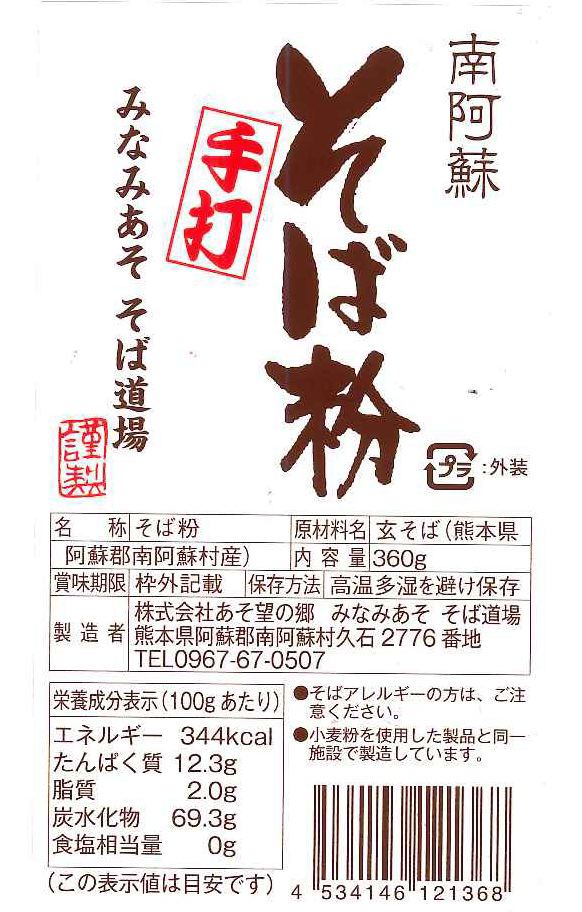 南阿蘇
そば粉
手打
みなみあそ そば道場
謹製
プラ :外装
名 称 そば粉 原材料名 玄そば(熊本県
阿蘇郡南阿蘇村産) 内容量 360g
賞味期限 枠外記載 保存方法 高温多湿を避け保存
製造者 株式会社あそ望の郷 みなみあそ そば道場
熊本県阿蘇郡南阿蘇村久石2776番地
TEL0967-67-0507
栄養成分表示(100gあたり)
エネルギー 344kcal
たんぱく質 12.3g
脂質 2.0g
炭水化物 69.3g
食塩相当量 0g
(この表示値は目安です)
●そばアレルギーの方は、ご注
意ください。
●小麦粉を使用した製品と同一
施設で製造しています。
4 534146 121368